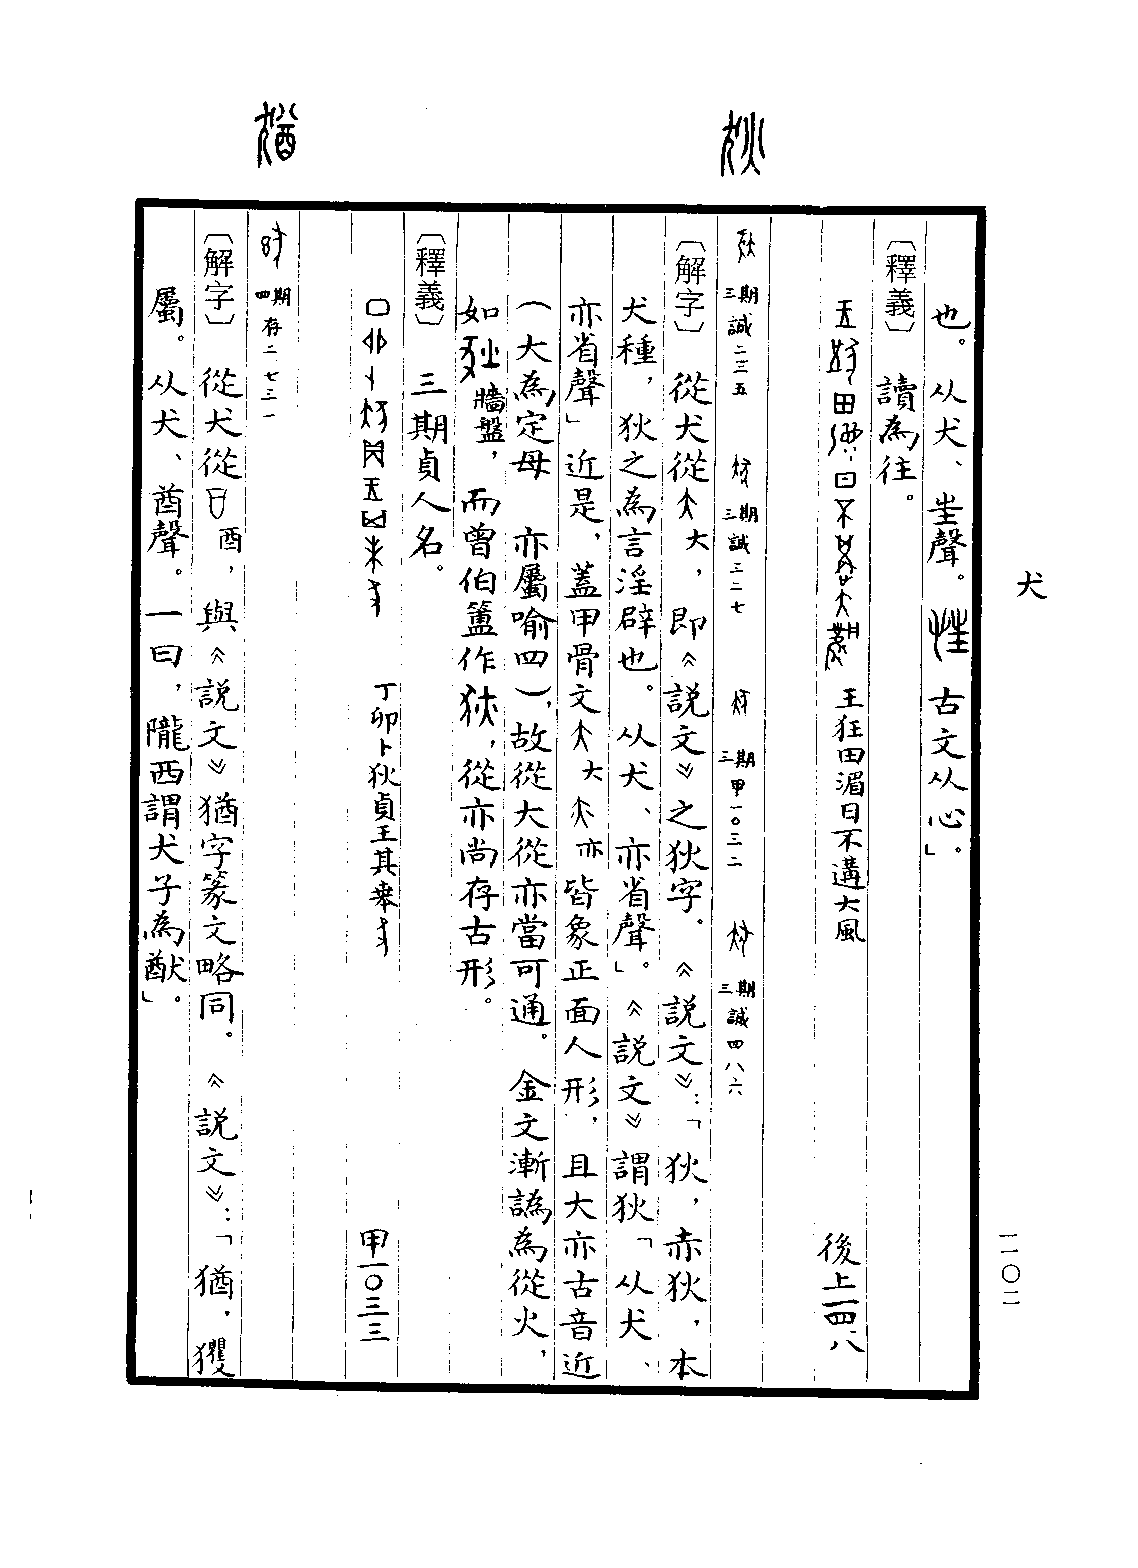 犬
一一〇二
也。从犬、㞷聲。古文从心。」
〔釋義〕讀為往。
王狂田湄日不遘大風 後上一四·八
狄
三期 誠二三五 三期 誠三二七 三期 甲一〇三二 三期 誠四八六
〔解字〕從犬從大，即《説文》之狄字。《説文》：「狄，赤狄，本
犬種，狄之為言淫辟也。从犬、亦省聲」。《説文》謂狄「从犬、
亦省聲」近是，蓋甲骨文大亦皆象正面人形，且大亦古音近
（大為定母 亦屬喻四），故從大從亦當可通。金文漸譌為從火，
如牆盤，而曾伯簠作，從亦尚存古形。
〔釋義〕三期貞人名。
丁卯卜狄貞王其㚔 甲一〇三三
猶
四期 存二·七三一
〔解字〕從犬從酉，與《説文》猶字篆文略同。《説文》：「猶，玃
屬。从犬、酋聲。一曰，隴西謂犬子為猷」。